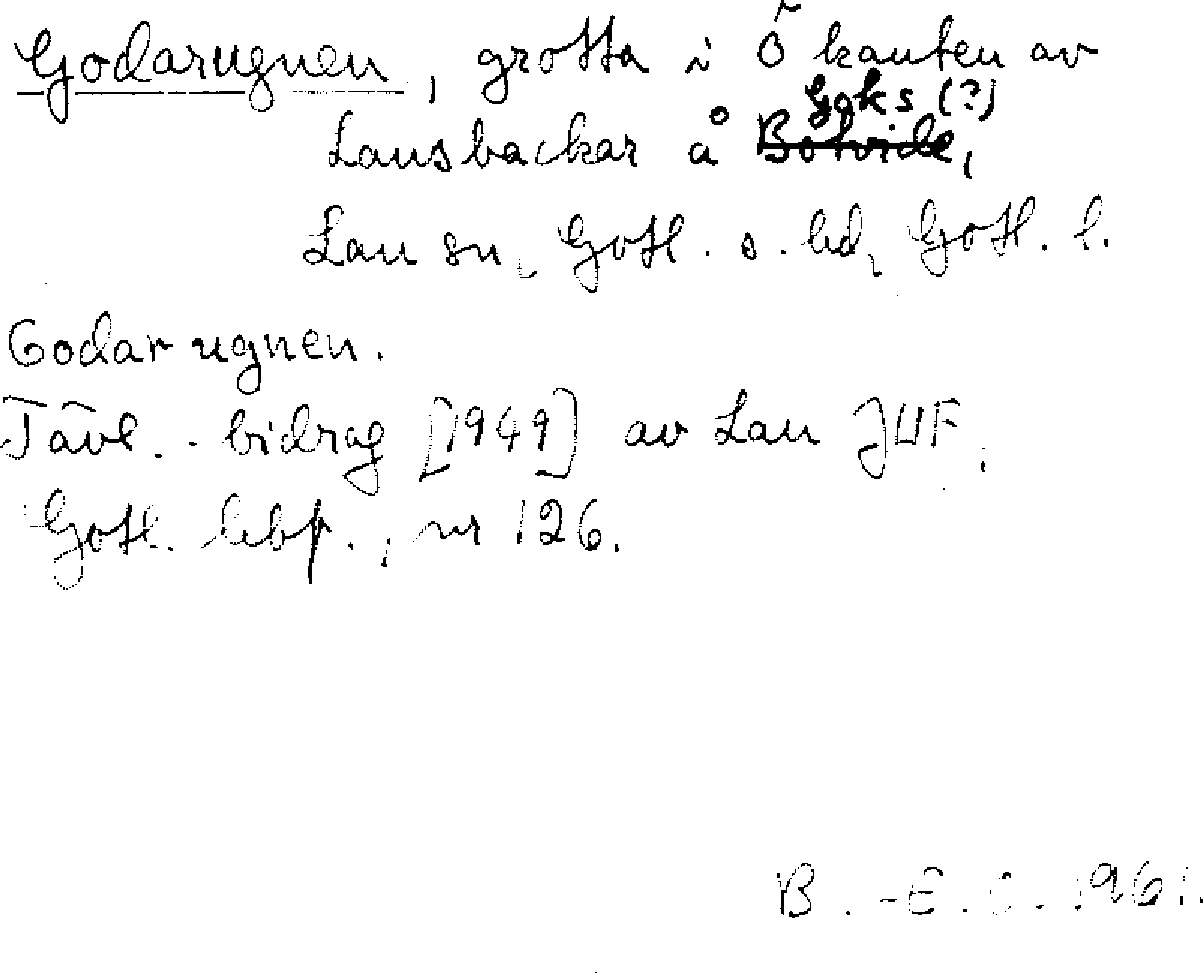 Godarugnen, grotta i Ö kanten av
Goks (?)
Lausbackar å Botvide,
Lau sn, Gotl. s. hd, Gotl. l.
Godarugnen.
Tävl.-bidrag [1949] av Lau JUF.
Gotl. lbf., nr 126.
B.-E. O. 1961.